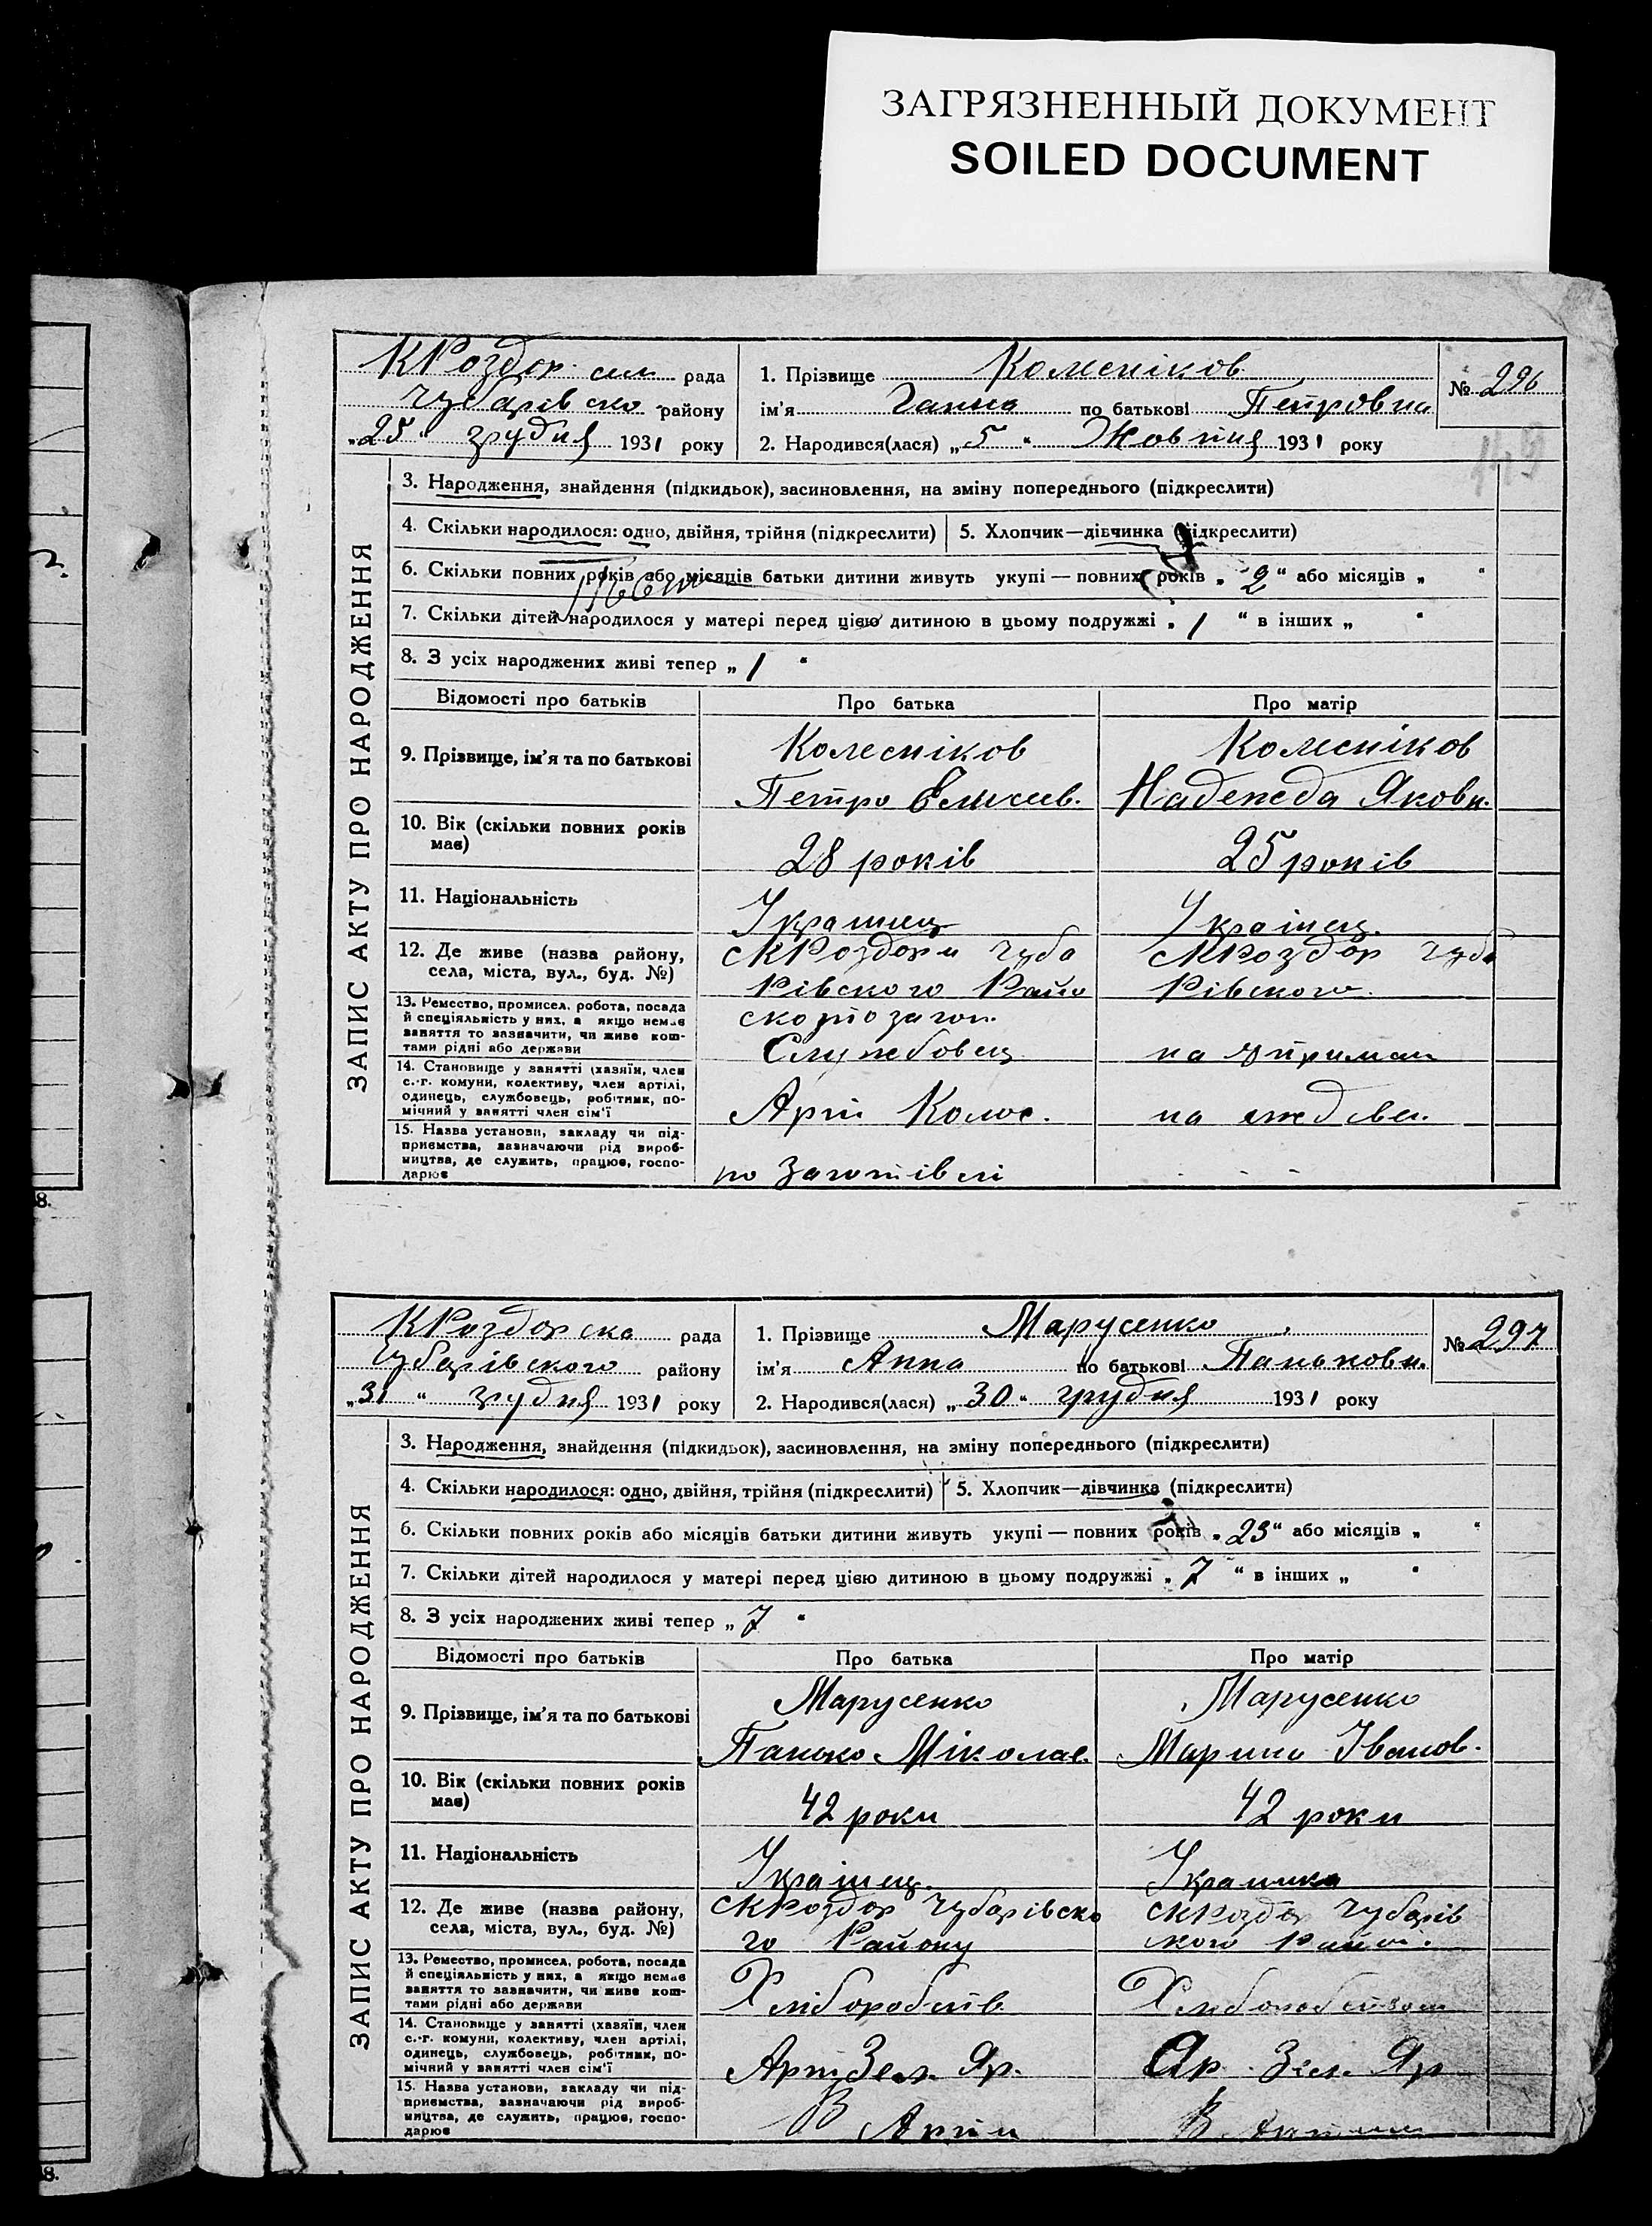 ЗАГРЯЗНЕННЫЙ ДОКУМЕНТ
SOILED DOCUMENT
КРоздор сил рада
Чубарівско району
„25“ грудня 1931 року
1. Прізвище Колесніков
№ 296
ім'я Ганна по батькові Петровна
2. Народився(лася) „5“ Жовтня 1931 року
149
ЗАПИС АКТУ ПРО НАРОДЖЕННЯ
3. Народження, знайдення (підкидьок), засиновлення, на зміну попереднього (підкреслити)
4. Скільки народилося: одно, двійня, трійня (підкреслити)
5. Хлопчик—дівчинка (підкреслити)
6. Скільки повних років або місяців батьки дитини живуть укупі — повних років „2“ або місяців „ “
7. Скільки дітей народилося у матері перед цією дитиною в цьому подружжі „1“ в інших „ “
8. З усіх народжених живі тепер „1“
Відомості про батьків
Про батька
Про матір
9. Прізвище, ім'я та по батькові
Колесніков
Петро Елисеев.
Колесніков
Надежда Яковн.
10. Вік (скільки повних років має)
28 років
25 років
11. Національність
Украинец
Украінец.
12. Де живе (назва району,
села, міста, вул., буд. №)
с КРоздори Чуба
Рівского Райо
с КРоздор Чуба
Рівского.
13. Ремество, промисел, робота, посада
й спеціяльність у них, а якщо немає
заняття то зазначити, чи живе кош-
тами рідні або держави
скотозагот.
Службовец
на утриман
14. Становище у занятті (хазяїн, член
с.-г. комуни, колективу, член артілі,
одинець, службовець, робітник, по-
мічний у занятті член сім'ї
Арті Колос.
на
15. Назва установи, закладу чи під-
приємства, зазначаючи рід вироб-
ництва, де служить, працює, госпо-
дарює
по Заготівлі
8.
КРоздорско рада
Чубарівского району
„31“ грудня 1931 року
1. Прізвище Марусенко
№ 297
ім'я Анна по батькові Паньковн.
2. Народився(лася) „30“ грудня 1931 року
ЗАПИС АКТУ ПРО НАРОДЖЕННЯ
3. Народження, знайдення (підкидьок), засиновлення, на зміну попереднього (підкреслити)
4. Скільки народилося: одно, двійня, трійня (підкреслити)
5. Хлопчик—дівчинка (підкреслити)
6. Скільки повних років або місяців батьки дитини живуть укупі — повних років „23“ або місяців „ “
7. Скільки дітей народилося у матері перед цією дитиною в цьому подружжі „7“ в інших „ “
8. З усіх народжених живі тепер „7“
Відомості про батьків
Про батька
Про матір
9. Прізвище, ім'я та по батькові
Марусенко
Панько Міколае.
Марусенко
Марина Іванов.
10. Вік (скільки повних років має)
42 роки
42 роки
11. Національність
Украінец.
Украинка
12. Де живе (назва району,
села, міста, вул., буд. №)
с КРоздор Чубарівско
го Району
с КРоздор Чубарів
ского Райо.
13. Ремество, промисел, робота, посада
й спеціяльність у них, а якщо немає
заняття то зазначити, чи живе кош-
тами рідні або держави
Хліборобств
Хлиборобством
14. Становище у занятті (хазяїн, член
с.-г. комуни, колективу, член артілі,
одинець, службовець, робітник, по-
мічний у занятті член сім'ї
Арт Зел. Яр.
Ар. Зел. Яр
15. Назва установи, закладу чи під-
приємства, зазначаючи рід вироб-
ництва, де служить, працює, госпо-
дарює
В Артіи
В
8.